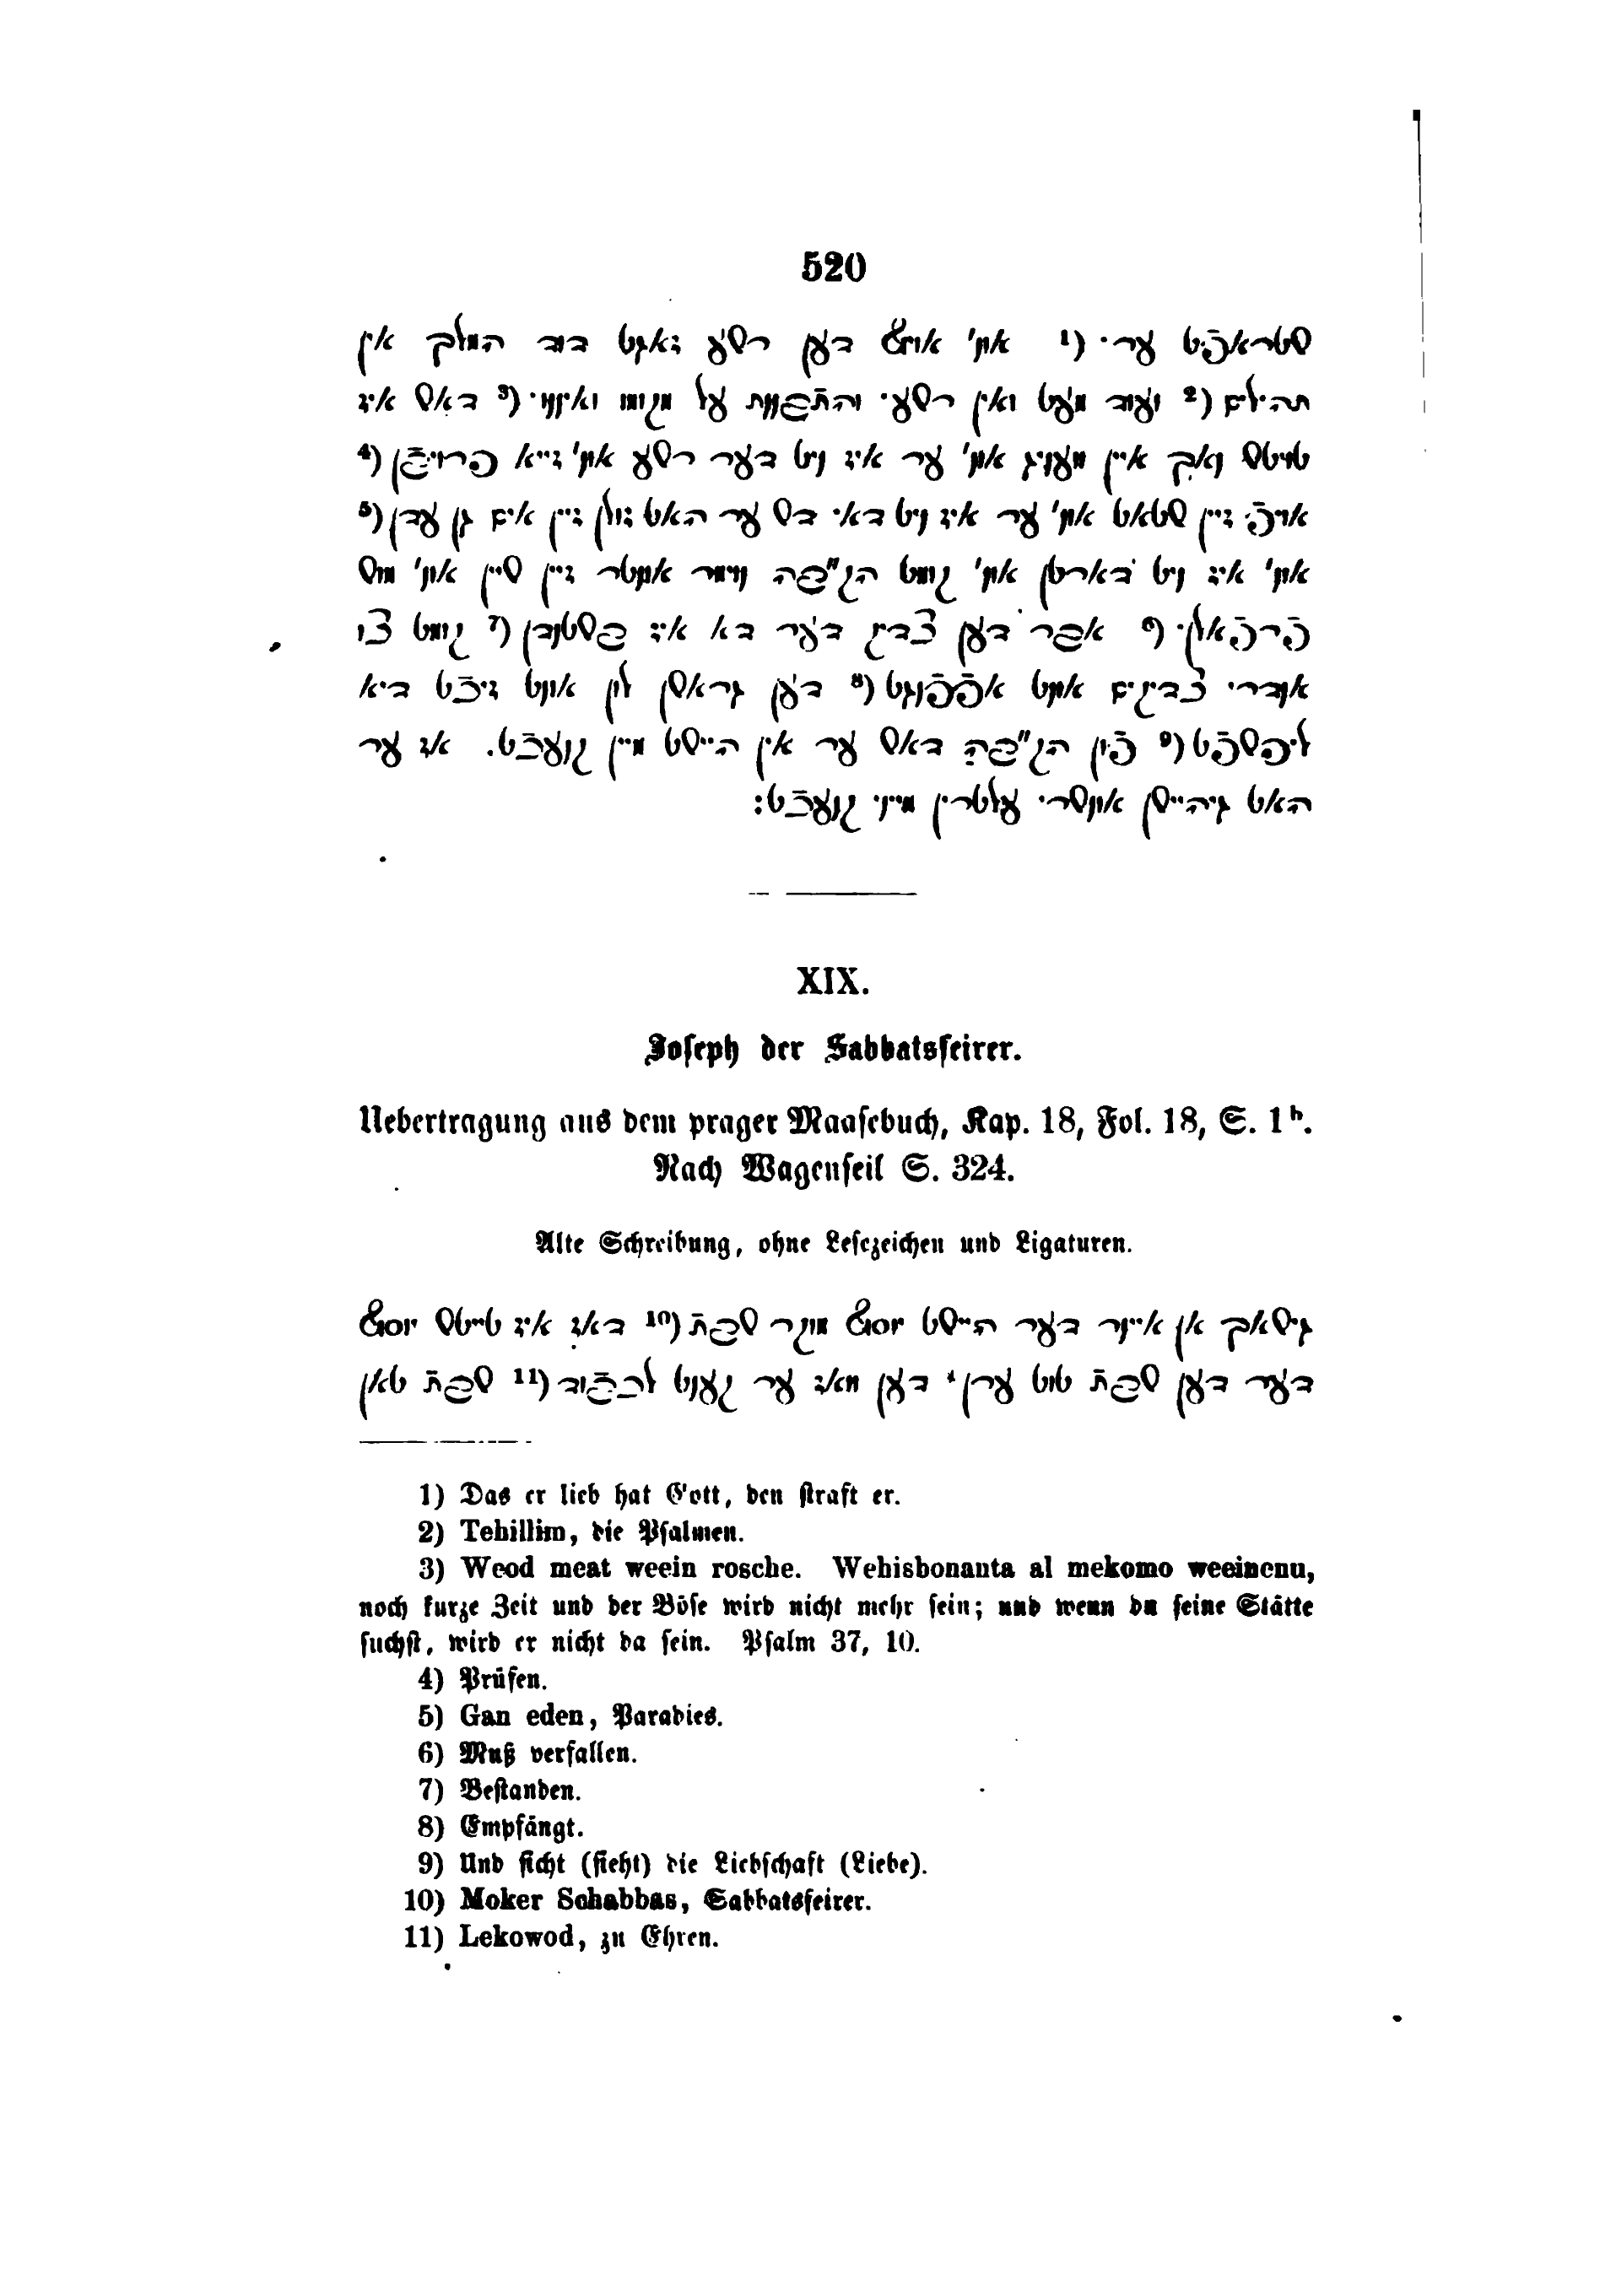 520
שטראפֿט ער· (¹ אונ' אויף דען רשע זאגט דוד המלך אין
תהילים (² ועוד מעט ואין רשע· והתֿבוננת על מקומו ואיננו· (³ דאש איז
טייטש נאך איין מעניג אונ' ער איז ניט דער רשע אונ' זייא ברויבֿן (⁴
אויף זיין שטאט אונ' ער איז ניט דא· דש ער האט זולן זיין אים גן עדן (⁵
אונ' איז ניט דארטן אונ' קומט הק"בה ווידר אונטר זיין שיין אונ' מוש
פֿרפֿאלן· (⁶ אבר דען צדיק דער דא איז בשטנדן (⁷ קומט צו
אנדרי צדיקים אונט אנפֿפֿנגט (⁸ דען גראשן לון אונט זיכֿט דיא
ליבשפֿט (⁹ פֿון הק"בה דאש ער אין הייסט מיין קנעכֿט. אז ער
האט גיהיישן אונשרי עלטרין מייני קנעכֿט:
XIX.
Joseph der Sabbatsfeirer.
Uebertragung aus dem prager Maasebuch, Kap. 18, Fol. 18, S. 1ᵇ.
Nach Wagenseil S. 324.
Alte Schreibung, ohne Lesezeichen und Ligaturen.
גישאך אן איינר דער הייסט יוסף מוקר שבתֿ (¹⁰ דאז איז טייטש יוסף
דער דען שבתֿ טוט ערן· דען וואז ער קענט לכבֿוד (¹¹ שבתֿ טאן
1) Das er lieb hat Gott, den straft er.
2) Tehillim, die Psalmen.
3) Weod meat weein rosche. Wehisbonanta al mekomo weeinenu,
noch kurze Zeit und der Böse wird nicht mehr sein; und wenn du seine Stätte
suchst, wird er nicht da sein. Psalm 37, 10.
4) Prüfen.
5) Gan eden, Paradies.
6) Muß verfallen.
7) Bestanden.
8) Empfängt.
9) Und sicht (sieht) die Liebschaft (Liebe).
10) Moker Schabbas, Sabbatsfeirer.
11) Lekowod, zu Ehren.